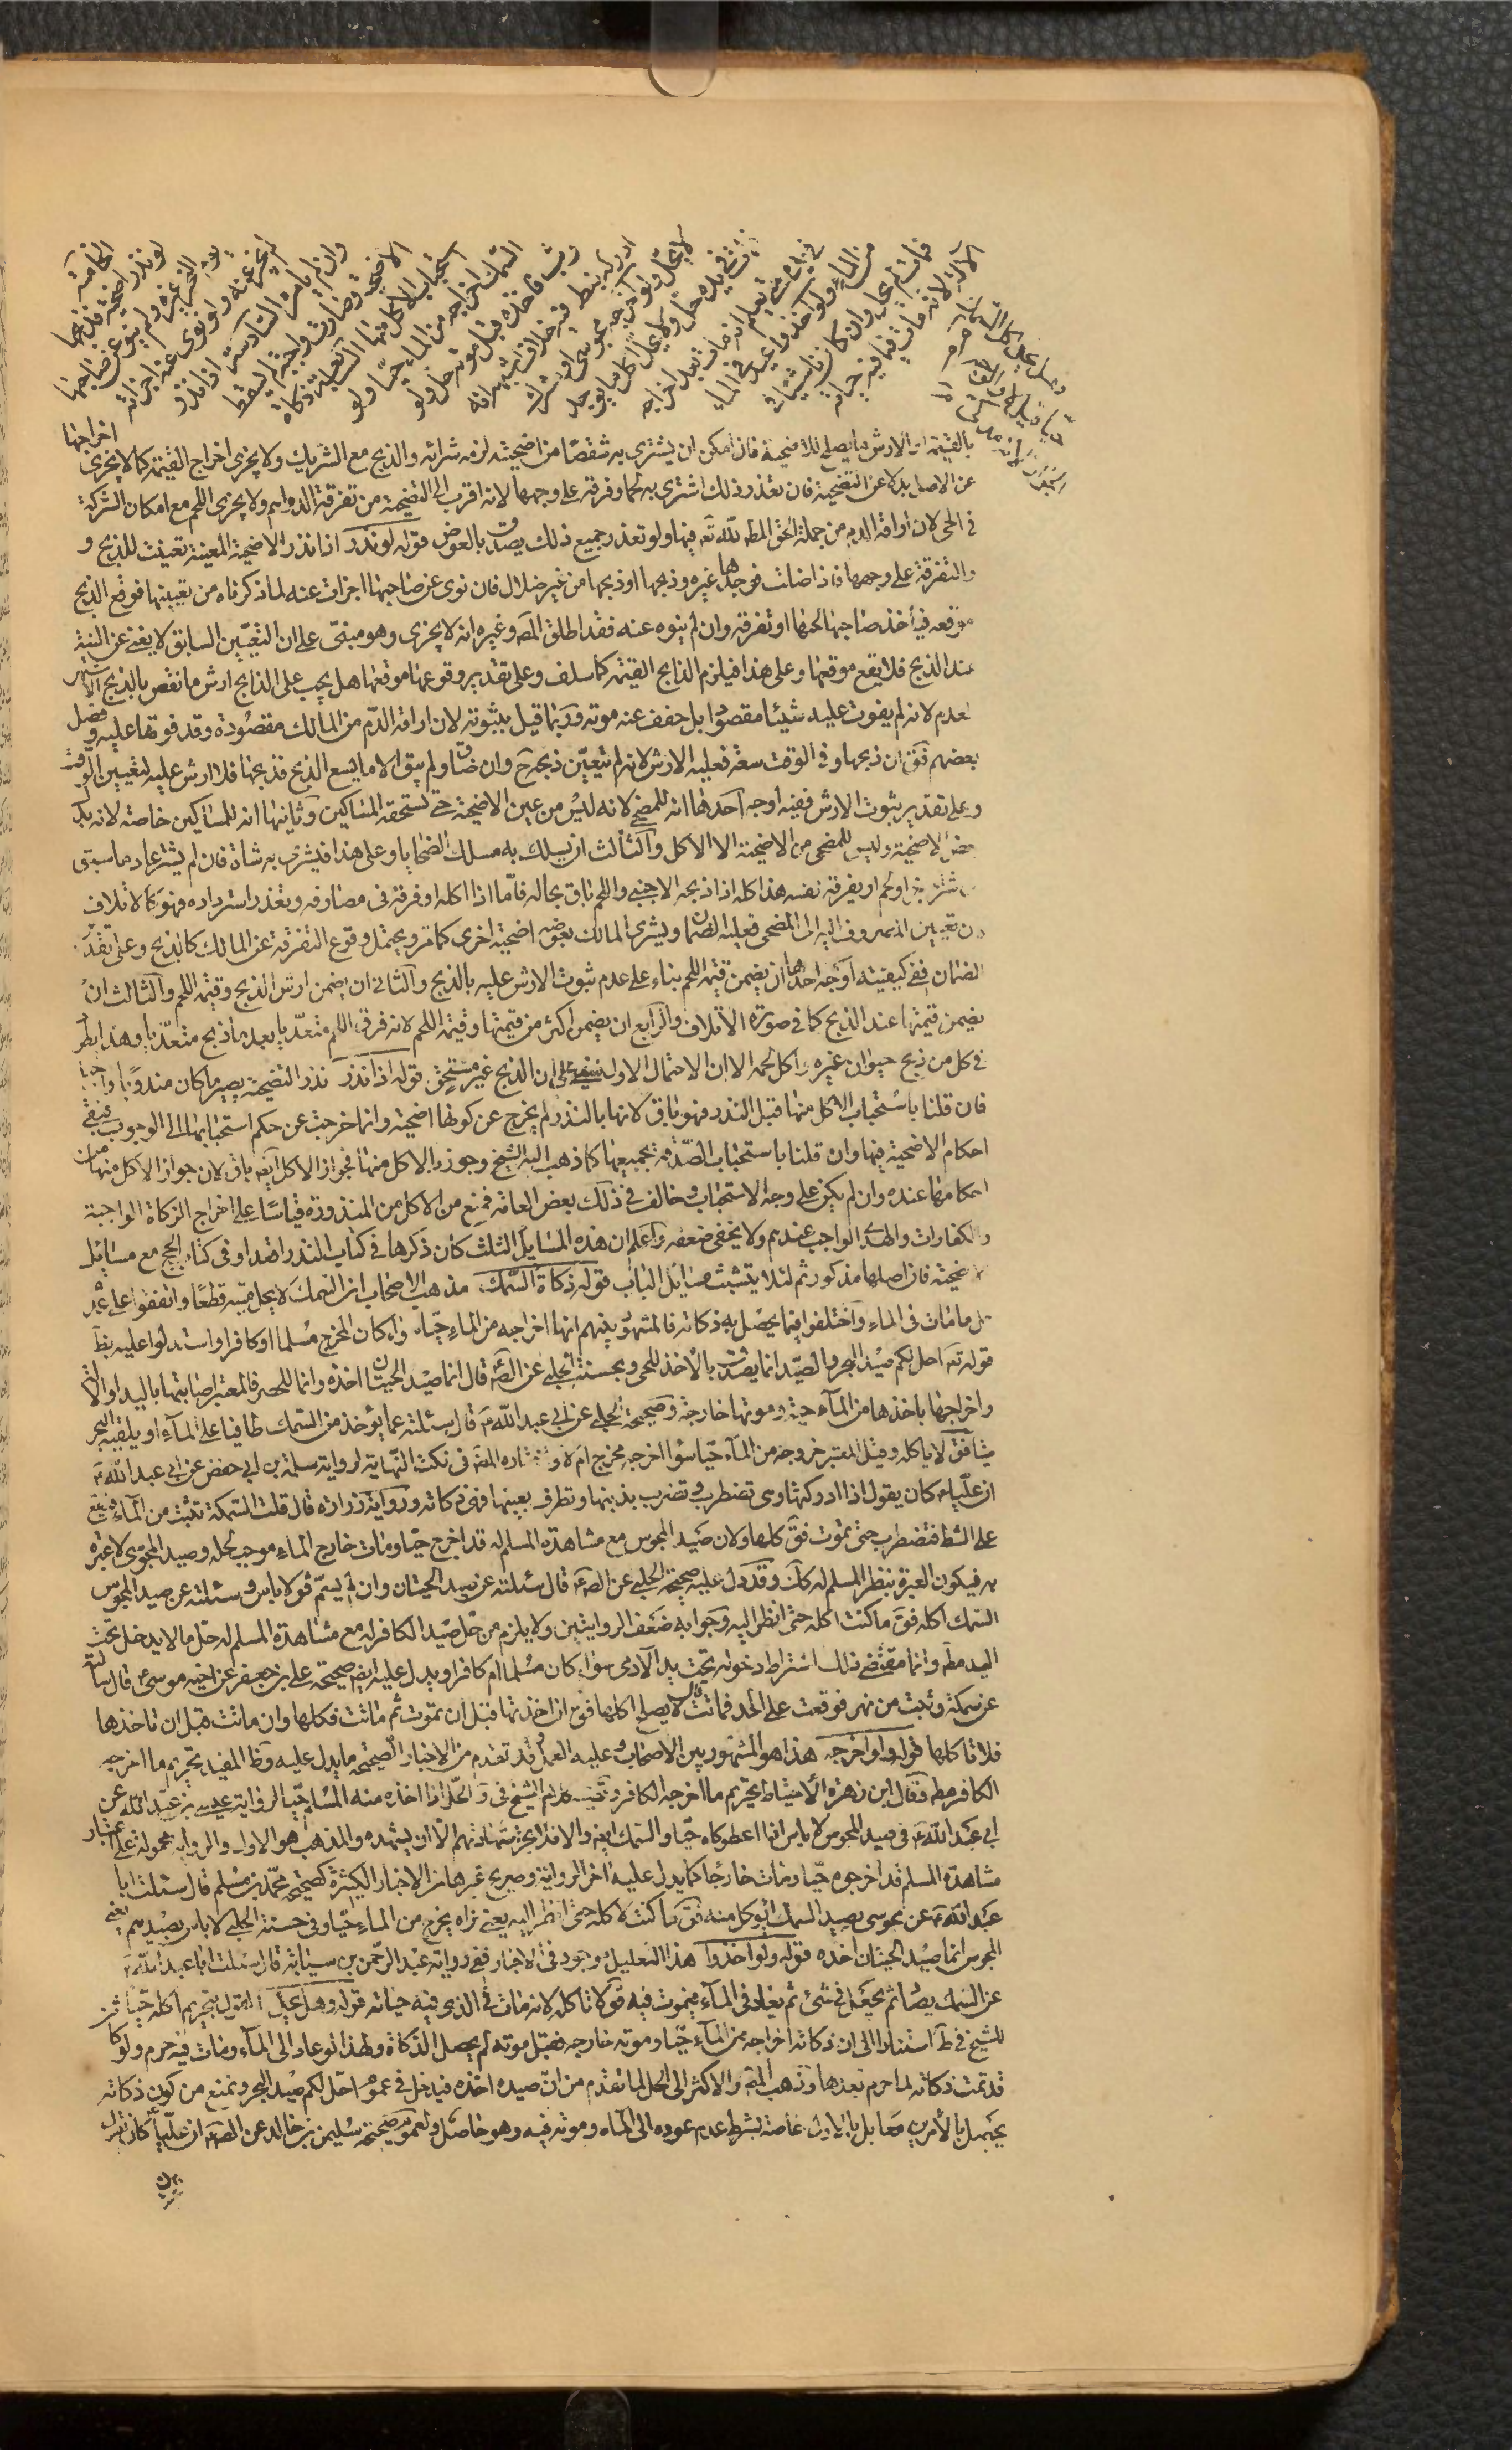 الخامسة
لو نذر اضحية فذبحها
يوم النحر غيره ولم ينو عن صاحبها
لم يجز عنه ولو نوى عنه اجزأته
وان لم يأمره السادسة اذا نذر
الاضحية وصارت واجبة لم يسقط
استحباب الاكل منها السابعة ذكاة
السمك اخراجه من الماء حيا ولو
وثب فاخذه قبل موته حل ولو
ادركه بنظره فيه خلاف اشبهه انه
لا يحل ولو اخرجه مجوسى او مشرك
فمات فى يده حل ولا يحل اكل ما يوجد
فى يده حتى يعلم انه مات بعد اخراجه
من الماء ولو اخذ واعيد فى الماء
فمات لم يحل وان كان ناشبا فى
الآلة لانه مات فيما فيه حياته
وهل يحل اكل السمك
بالقيمة او الارش ما يصلح للاضحية فان امكن ان يشترى به شقصا من اضحيته لزمه شرائه والذبح مع الشريك ولا يجزى اخراج القيمة كما لا يجزى اخراجها
عن الاصل بدلا عن التضحية فان تعذر ذلك اشترى به لحما وفرقه على وجهها لانه اقرب الى التضحية من تفرقة الدراهم ولا يجزى اللحم مع امكان الشركة
فى الحى لان اراقة الدم من جملة الحق المط لله تع فيها ولو تعذر جميع ذلك يصدق بالعوض قوله لو نذر اذا نذر الاضحية المعينة تعينت للذبح و
والتفرقة على وجهها فاذا ضلت فوجدها غيره وذبحها او ذبحها من غير ضلال فان نوى عن صاحبها اجزأت عنه لما ذكرناه من تعيينها فوقع الذبح
موقعه فيأخذ صاحبها لحمها او تفرقه وان لم ينوه عنه فقد اطلق المص وغيره انه لا يجزى وهو مبنى على ان التعيين السابق لا يغنى عن النية
عند الذبح فلا يقع موقعها وعلى هذا فيلزم الذابح القيمة كما سلف وعلى تقدير وقوعها موقعها هل يجب على الذابح ارش ما نقص بالذبح الاشهر
لعدم لانه لم يفوت عليه شيئا مقصودا بل خفف عنه موته وربما قيل بثبوته لان اراقة الدم من المالك مقصودة وقد فوتها عليه وفصل
بعضهم فق ان ذبحها وفى الوقت سعة فعليه الارش لانه لم يتعين ذبحه ح وان ضاق ولم يبق الا ما يسع الذبح فذبحها فلا ارش عليه لتعيين الوقت
وعلى تقدير ثبوت الارش ففيه اوجه احدها انه للمضحى لانه ليس من عين الاضحية حتى تستحقه المساكين وثانيها انه للمساكين خاصة لانه بدل
بعض الاضحية وليس للمضحى من الاضحية الا الاكل والثالث ان يسلك به مسلك الضحايا وعلى هذا فيشترى به شاة فان لم يتيسر عاد ما سبق
او لحم او يفرقه نفسه هذا كله اذا ذبحه الاجنبى واللحم باق بحاله فاما اذا اكله او فرقه فى مصارفه وتعذر استرداده فهو كالاتلاف
تعيين المصروف اليه الى المضحى فعليه الضمان ويشترى المالك بعوضه اضحية اخرى كما مر ويحتمل وقوع التفرقة عن المالك كالذبح وعلى تقدير
الضمان ففى كيفيته اوجه احدها ان يضمن قيمة اللحم بناء على عدم ثبوت الارش عليه بالذبح والثانى ان يضمن ارش الذبح وقيمة اللحم والثالث ان
يضمن قيمتها عند الذبح كما فى صورة الاتلاف والرابع ان يضمن اكثر من قيمتها وقيمة اللحم لانه فرق اللحم متعديا بعد ما ذبح متعديا وهذا يطرد
فى كل من ذبح حيوان غيره واكل لحمه الا ان الاحتمال الاول ينبغى على ان الذبح غير مستحق قوله اذا نذر نذر التضحية يصير ما كان مندوبا واجبا
فان قلنا باستحباب الاكل منها قبل النذر فهو باق لانها بالنذر لم يخرج عن كونها اضحية وانما خرجت عن حكم استحبابها الى الوجوب فيبقى
احكام الاضحية فيها وان قلنا باستحباب الصدقة بجميعها كما ذهب اليه الشيخ وجوز الاكل منها فجواز الاكل ايض باق لان جواز الاكل منها من
احكامها عنده وان لم يكن على وجه الاستحباب وخالف فى ذلك بعض العامة فمنع من الاكل من المنذورة قياسا على اخراج الزكاة الواجبة
والكفارات والهدى الواجب عندهم ولا يخفى ضعفه واعلم ان هذه المسايل الثلث كان ذكرها فى كتاب النذر اقعد او فى كتاب الحج مع مسائل
الاضحية فان اصلها مذكور ثم لئلا يتشتت مسايل الباب قوله ذكاة السمك مذهب الاصحاب ان السمك لا يحل ميته قطعا واتفقوا على تحريم
ما مات فى الماء واختلفوا فيما يحصل به ذكاته فالمشهور بينهم انها اخراجه من الماء حيا وان كان المخرج مسلما او كافرا واستدلوا عليه بظاهر
قوله تع احل لكم صيد البحر والصيد انما يصدق بالاخذ للحى وبحسنة الحلبى عن الص قال انما صيد الحيتان اخذه وانما للحصر فالمعتبر اصابتها باليد او الآلة
واخراجها باخذها من الماء حية وموتها خارجة وصحيحة الحلبى عن ابى عبد الله ع قال سئلته عما يؤخذ من السمك طافيا على الماء او يلقيه البحر
ميتا فق لا ياكله وقيل المعتبر خروجه من الماء حيا سواء اخرجه مخرج ام لا واختاره المص فى نكت النهاية لرواية سلمة بن ابى حفص عن ابى عبد الله ع
ان عليا ع كان يقول اذا ادركتها وهى تضطرب وتضرب بذنبها وتطرف بعينها فهى ذكاته ورواية زرارة قال قلت السمكة تثب من الماء فتقع
على الشط فتضطرب حتى تموت فق كلها ولان صيد المجوس مع مشاهدة المسلم له قد اخرج حيا ومات خارج الماء موجب لحله وصيد المجوسى لا عبرة
به فيكون العبرة بنظر المسلم له كك وقد دل عليه صحيحة الحلبى عن الص ع قال سئلته عن صيد الحيتان وان لم يسم فق لا باس وسئلته عن صيد المجوس
السمك اكله فق ما كنت اكله حتى انظر اليه وجوابه ضعف الروايتين ولا يلزم من حل صيد الكافر له مع مشاهدة المسلم له حل ما لا يدخل تحت
اليد مط وانما مقتضى ذلك اشتراط دخوله تحت يد الآدمى سواء كان مسلما ام كافرا ويدل عليه ايض صحيحة على بن جعفر عن اخيه موسى ع قال سئلته
عن سمكة وثبت من نهر فوقعت على الجد فماتت هل يصلح اكلها فق ان اخذتها قبل ان تموت ثم ماتت فكلها وان ماتت قبل ان تاخذها
فلا تاكلها قوله ولو اخرجه هذا هو المشهور بين الاصحاب وعليه العمل وقد تقدم من الاخبار الصحيحة ما يدل عليه وظ المفيد تحريم ما اخرجه
الكافر مط وقال ابن زهرة الاحتياط تحريم ما اخرجه الكافر وكلام الشيخ فى الحل اذا اخذه منه المسلم حيا لرواية عيسى بن عبد الله عن
ابى عبد الله ع فى صيد المجوس لا باس اذا اعطوكاه حيا والسمك ايض والا فلا تجز شهادتهم الا ان يشهده والمذهب هو الاول والرواية محمولة على اعتبار
مشاهدة المسلم قد اخرجوه حيا ومات خارجا كما يدل عليه اخر الرواية وصريح غيرها من الاخبار الكثيرة كصحيحة محمد بن مسلم قال سئلت ابا
عبد الله ع عن مجوسى يصيد السمك ايؤكل منه فق ما كنت لاكله حتى انظر اليه يعنى نراه يخرج من الماء حيا وفى حسنة الحلبى لا باس بصيدهم يعنى
المجوس انما صيد الحيتان اخذه قوله ولو اخذ هذا التعليل موجود فى الاخبار ففى رواية عبد الرحمن بن سيابة قال سئلت ابا عبد الله ع
عن السمك يصاد ثم يجعل فى شئ ثم يعاد فى الماء فيموت فيه فق لا تاكله لانه مات فى الذى فيه حياته قوله وهل يحل القول بتحريم اكله حيا
للشيخ فى ط استنادا الى ان ذكاته اخراجه من الماء حيا وموته خارجه فقبل موته لم يحصل الذكاة ولهذا لو عاد الى الماء ومات فيه حرم ولو كا
قد تمت ذكاته لما حرم بعدها وذهب المص والاكثر الى الحل لما تقدم من ان صيده اخذه فيدخل فى عموم احل لكم صيد البحر ونمنع من كون ذكاته
يحصل بالامرين معا بل بالاول خاصة بشرط عدم عوده الى الماء وموته فيه وهو حاصل ولعموم صحيحة سليمن بن خالد عن الص ع ان عليا ع كان يقول